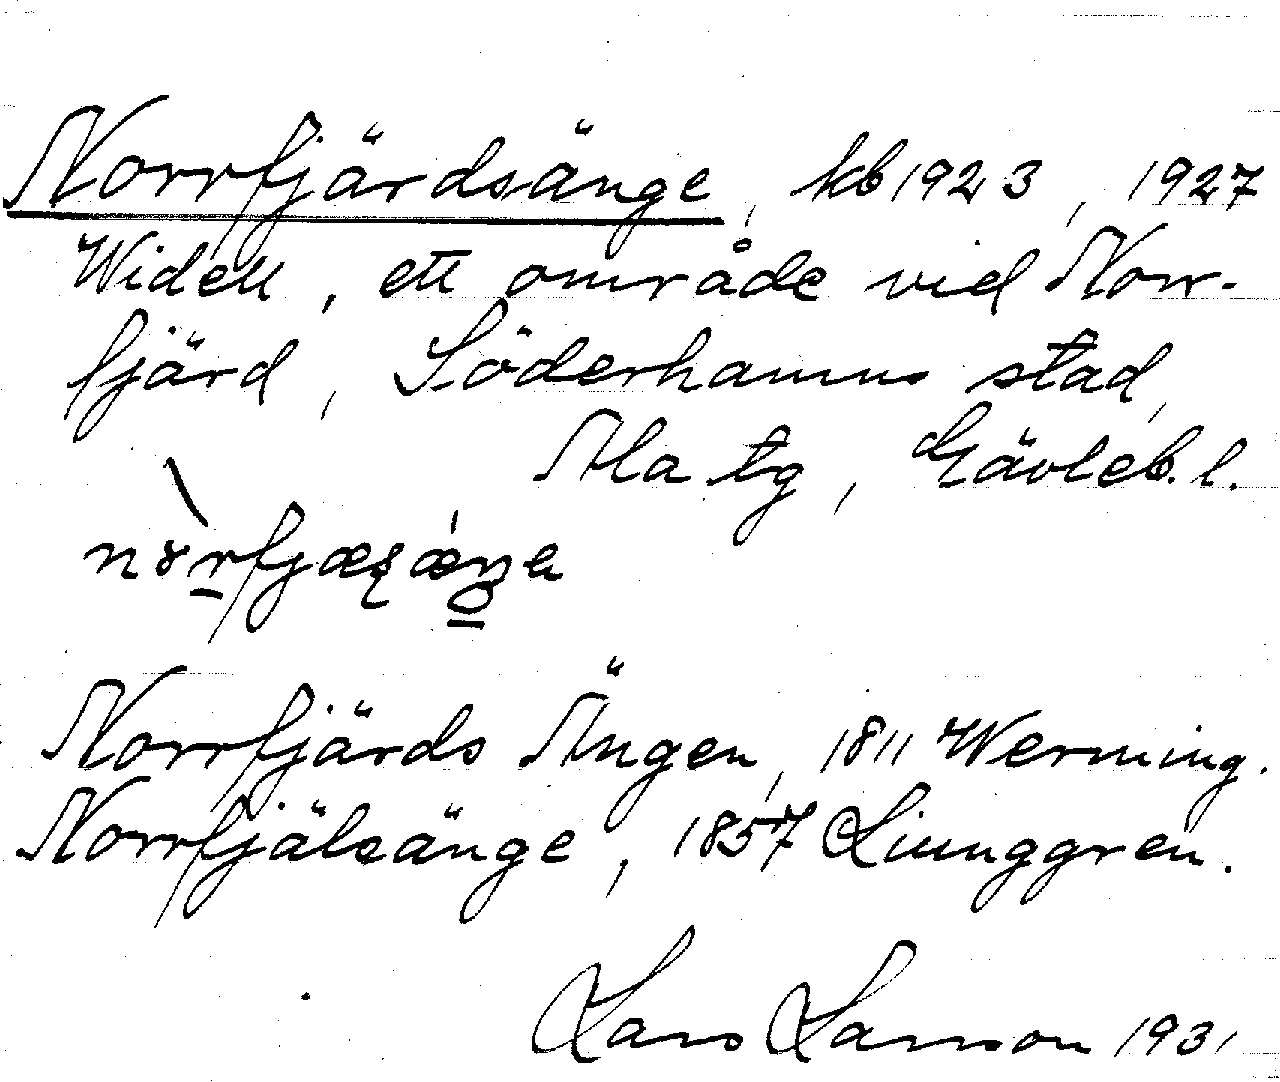 Norrfjärdsänge, kb 1923, 1927
Widell, ett område vid Norr-
fjärd, Söderhamns stad,
Ala tg, Gävleb. l.
Norrfjärds Ängen, 1811 Werming.
Norrfjälsänge, 1857 Liunggren.
Lars Larsson 1931